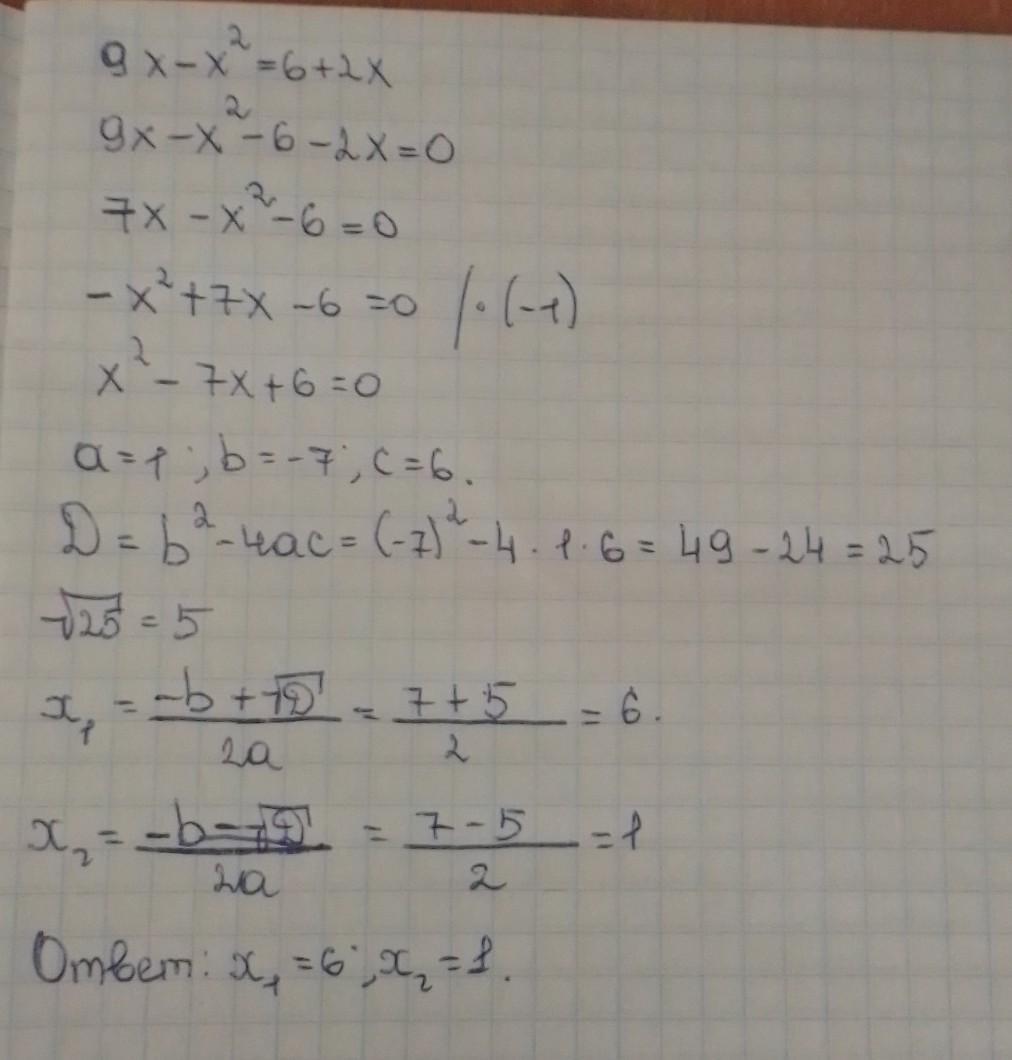 9x-x²=6+2x
9x-x²-6-2x=0
7x-x²-6=0
-x²+7x-6=0 /·(-1)
x²-7x+6=0
a=1; b=-7; c=6.
D=b²-4ac=(-7)²-4·1·6=49-24=25
√25=5
x₁=(-b+√D)/2a=(7+5)/2=6.
x₂=(-b-√D)/2a=(7-5)/2=1
Ответ: x₁=6; x₂=1.